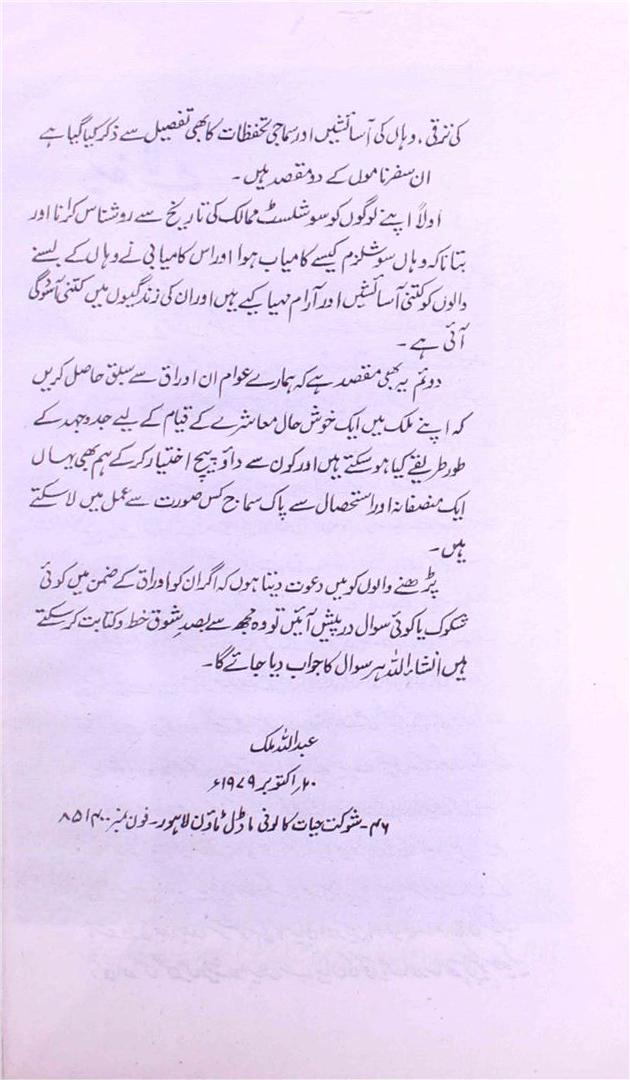 کی ترقی، وہاں کی آسائشیں اور سماجی تحفظات کا بھی تفصیل سے ذکر کیا گیا ہے
ان سفرناموں کے دو مقصد ہیں۔
اولاً اپنے لوگوں کو سوشلسٹ ممالک کی تاریخ سے روشناس کرانا اور
بتانا کہ وہاں سوشلزم کیسے کامیاب ہوا اور اس کامیابی نے وہاں کے بسنے
والوں کو کتنی آسائشیں اور آرام مہیا کیے ہیں اور ان کی زندگیوں میں کتنی آسودگی
آئی ہے۔
دوئم یہ بھی مقصد ہے کہ ہمارے عوام ان اوراق سے سبق حاصل کریں
کہ اپنے ملک میں ایک خوش حال معاشرے کے قیام کے لیے جدوجہد کے
طور طریقے کیا ہو سکتے ہیں اور کون سے داؤ پیچ اختیار کر کے ہم بھی یہاں
ایک منصفانہ اور استحصال سے پاک سماج کس صورت سے عمل میں لا سکتے
ہیں۔
پڑھنے والوں کو میں دعوت دیتا ہوں کہ اگر ان کو اوراق کے ضمن میں کوئی
شکوک یا کوئی سوال درپیش آئیں تو وہ مجھ سے بصد شوق خط و کتابت کر سکتے
ہیں انشاء اللہ ہر سوال کا جواب دیا جائے گا۔
عبداللہ ملک
۲۰؍ اکتوبر ۱۹۷۹ء
۴۶۔ شوکت حیات کالونی ماڈل ٹاؤن لاہور۔ فون نمبر